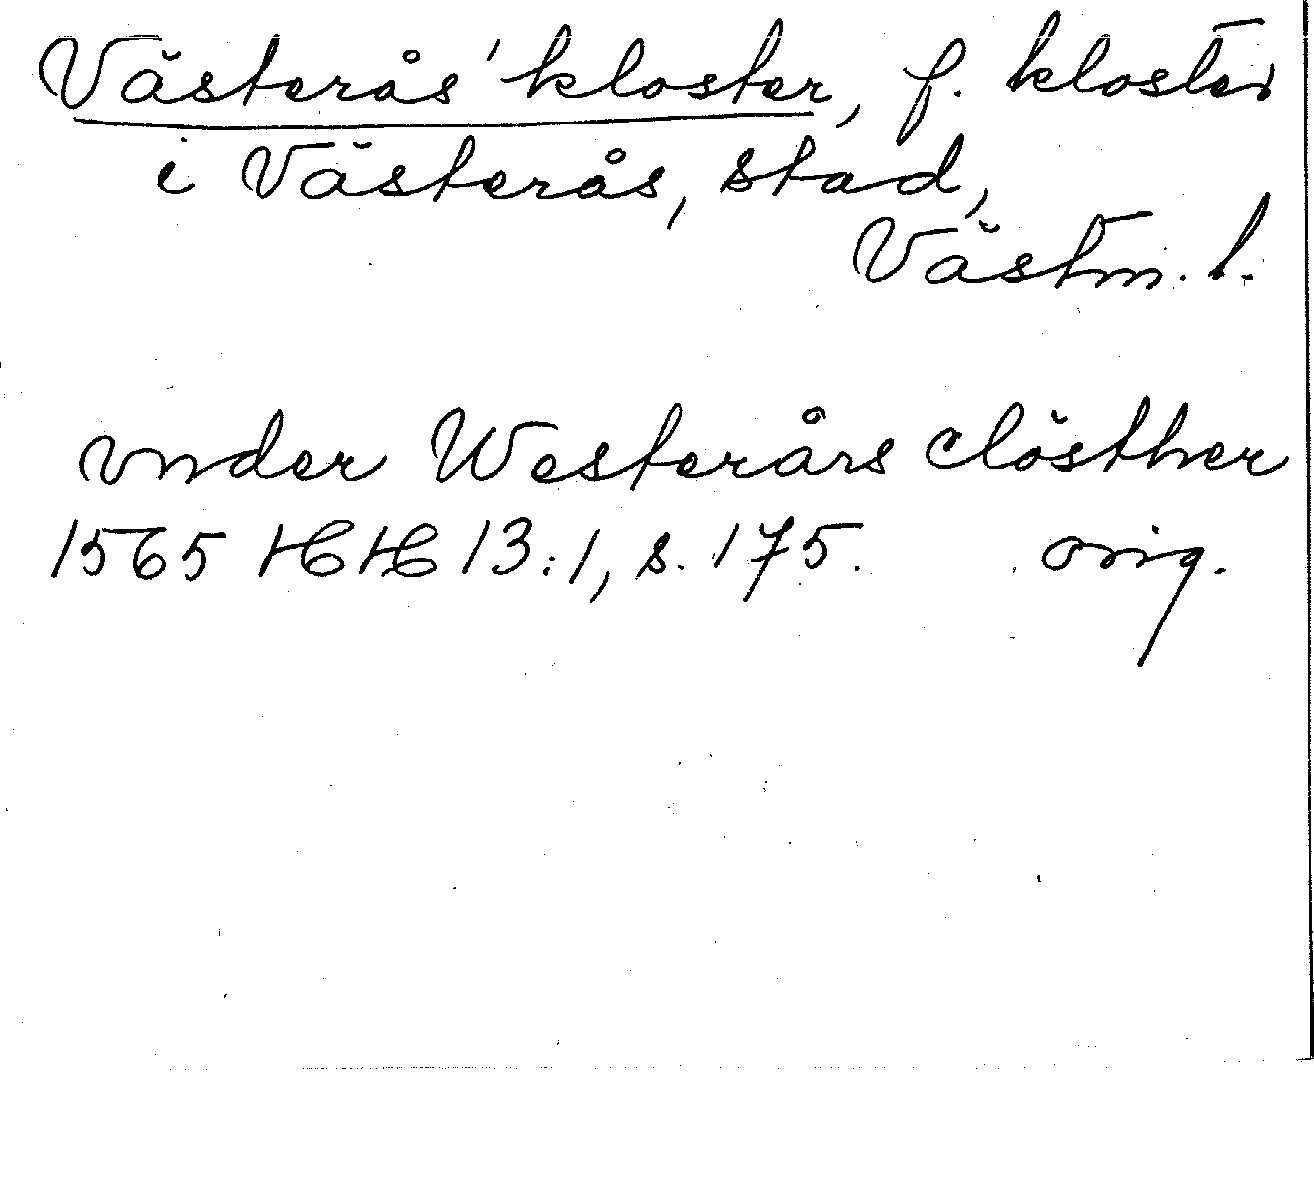 Västerås' kloster, f. kloster
i Västerås, stad,
Västm. l.
vnder Westerårs clösther
1565 HH 13:1, s. 175. orig.